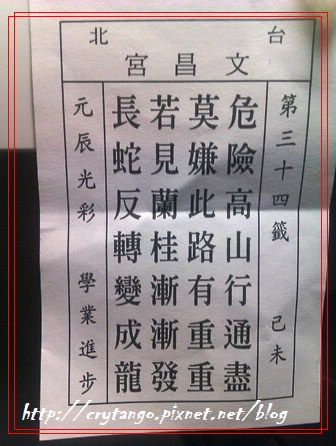 台北
文昌宮
第三十四籤 己未
危險高山行通盡
莫嫌此路有重重
若見蘭桂漸漸發
長蛇反轉變成龍
元辰光彩 學業進步
http://crytango.pixnet.net/blog